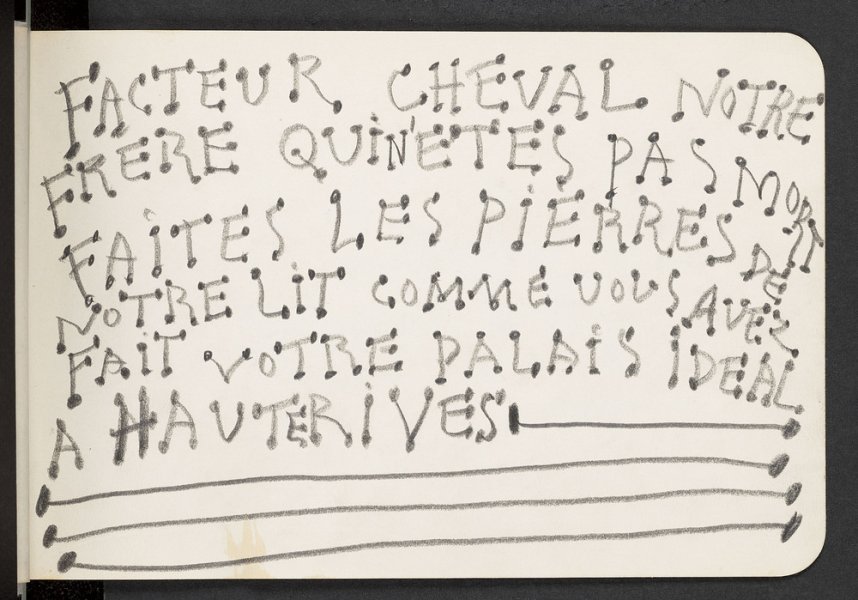 FACTEUR CHEVAL NOTRE
FRERE QUi N'ETES PAS MORT
FAiTES LES PiERRES DE
NOTRE LiT COMME VOUS AVEZ
FAiT VOTRE PALAiS iDEAL
A HAUTERiVES